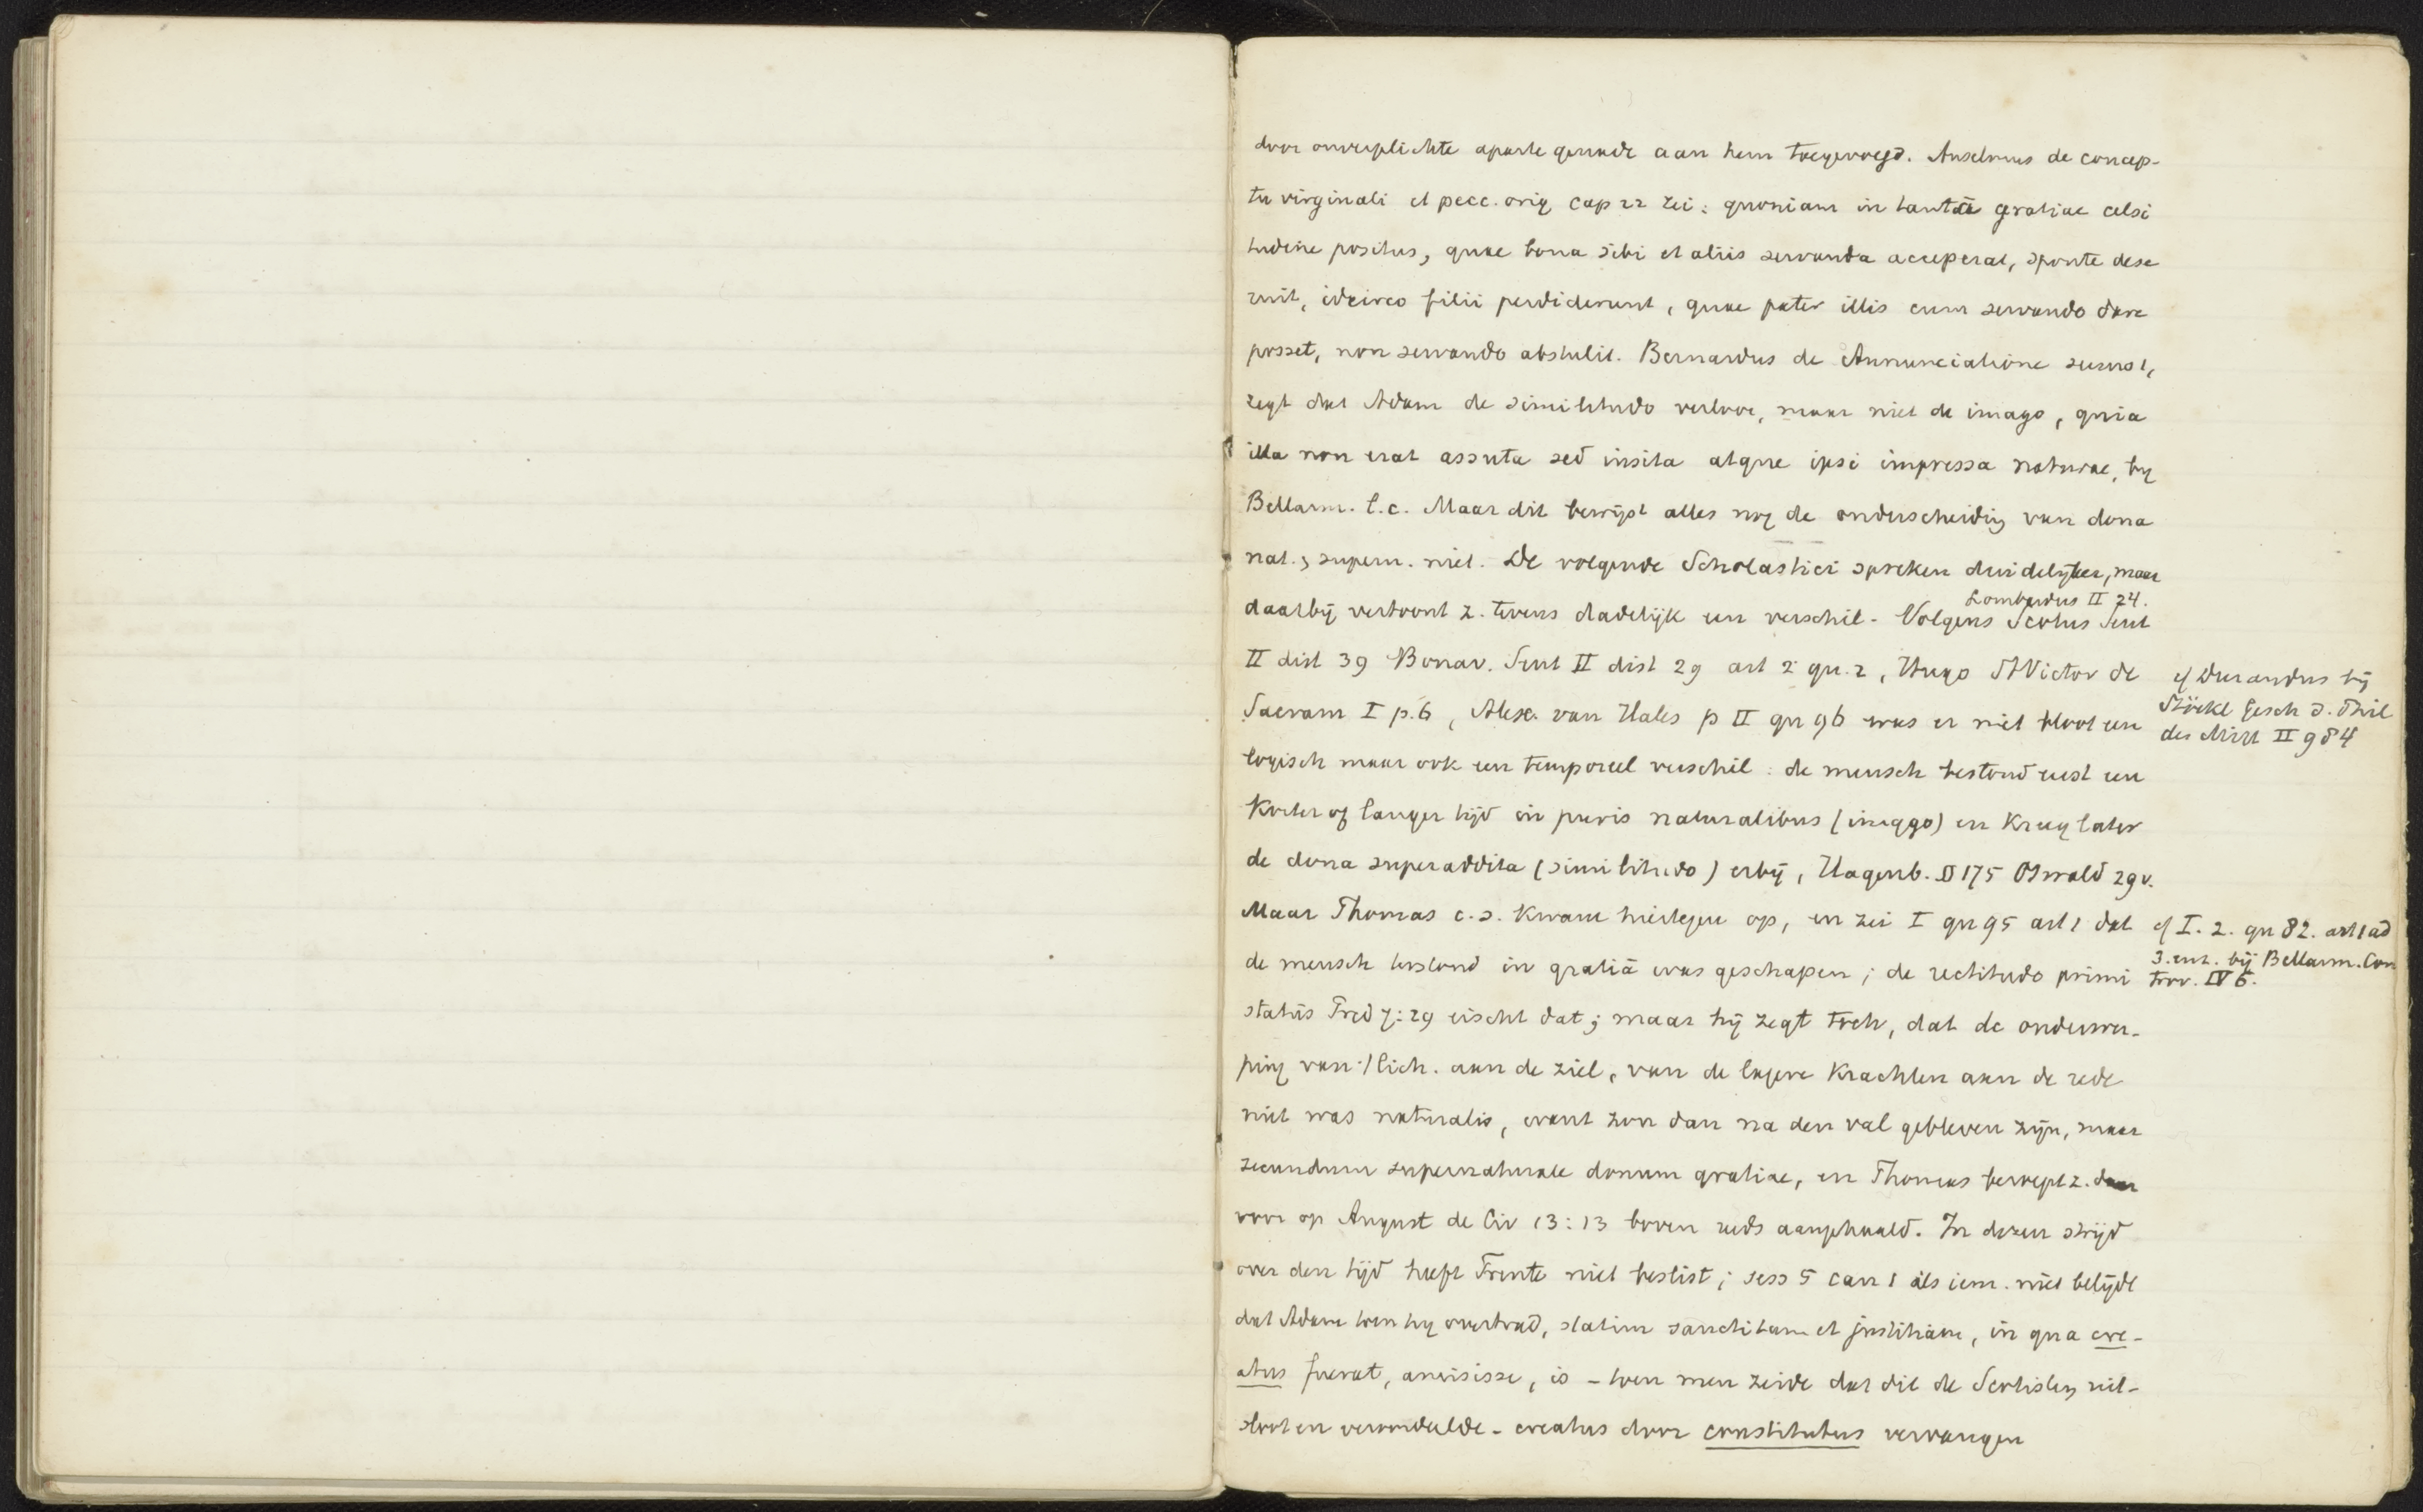 door onverplichte aparte genade aan hem toegevoegd. Anselmus de concep-
tu virginali et pecc. orig cap 22 zei: quoniam in tantae gratiae celsi
tudine positus, quae bona sibi et aliis servanda acceperat, sponte dese
ruit, idcirco filii perdiderunt, quae pater illis cum servando dare
posset, non servando abstulit. Bernardus de Annunciatione sermo 1,
zegt dat Adam de similitudo verloor, maar niet de imago, quia
illa non erat assuta sed insita atque ipsi impressa naturae, by
Bellarm. l.c. Maar dit bewijst alles nog de onderscheidig van dona
nat. & supern. niet. De volgende Scholastici spreken duidelijker, maar
Lombardus II 24.
daarbij vertoont z. tevens dadelijk een verschil. Volgens Scotus Sent
II dist 39 Bonav. Sent II dist 29 art 2 qu. 2, Hugo St Victor de
Sacram I p. 6, Alex. van Hales p II qu 96 was er niet bloot een
logisch maar ook een temporeel verschil: de mensch bestond eerst een
korter of langer tijd in puris naturalibus (imago) en kreeg later
de dona superaddita (similitudo) erbij, Hagenb. § 175 Oswald 29v.
Maar Thomas c.s. kwam hiertegen op, en zei I qu 95 art 1 dat
de mensch terstond in gratiā was geschapen; de rectitudo primi
statūs Pred 7:29 eischt dat; maar hij zegt toch, dat de onderwer-
ping van 't lich. aan de ziel, van de lagere krachten aan de rede
niet was naturalis, want zou dan na den val gebleven zijn, maar
secundum supernaturale donum gratiae, en Thomas beroept z. daar
voor op August de Civ 13:13 boven reeds aangehaald. In dezen strijd
over den tijd heeft Trente niet beslist; sess 5 can 1 als iem. niet belijdt
dat Adam toen hij overtrad, statim sanctitatem et justitiam, in qua cre-
atus fuerat, amisisse, is - toen men zeide dat dit de Scotisten uit-
sloot en veroordeelde - creatus door constitutus vervangen
cf Durandus bij
Stöckl Gesch d. Phil
des Mitt II 984
cf I. 2. qu 82. art 1 ad
3. enz. bij Bellarm. Con
trov. IV 6.